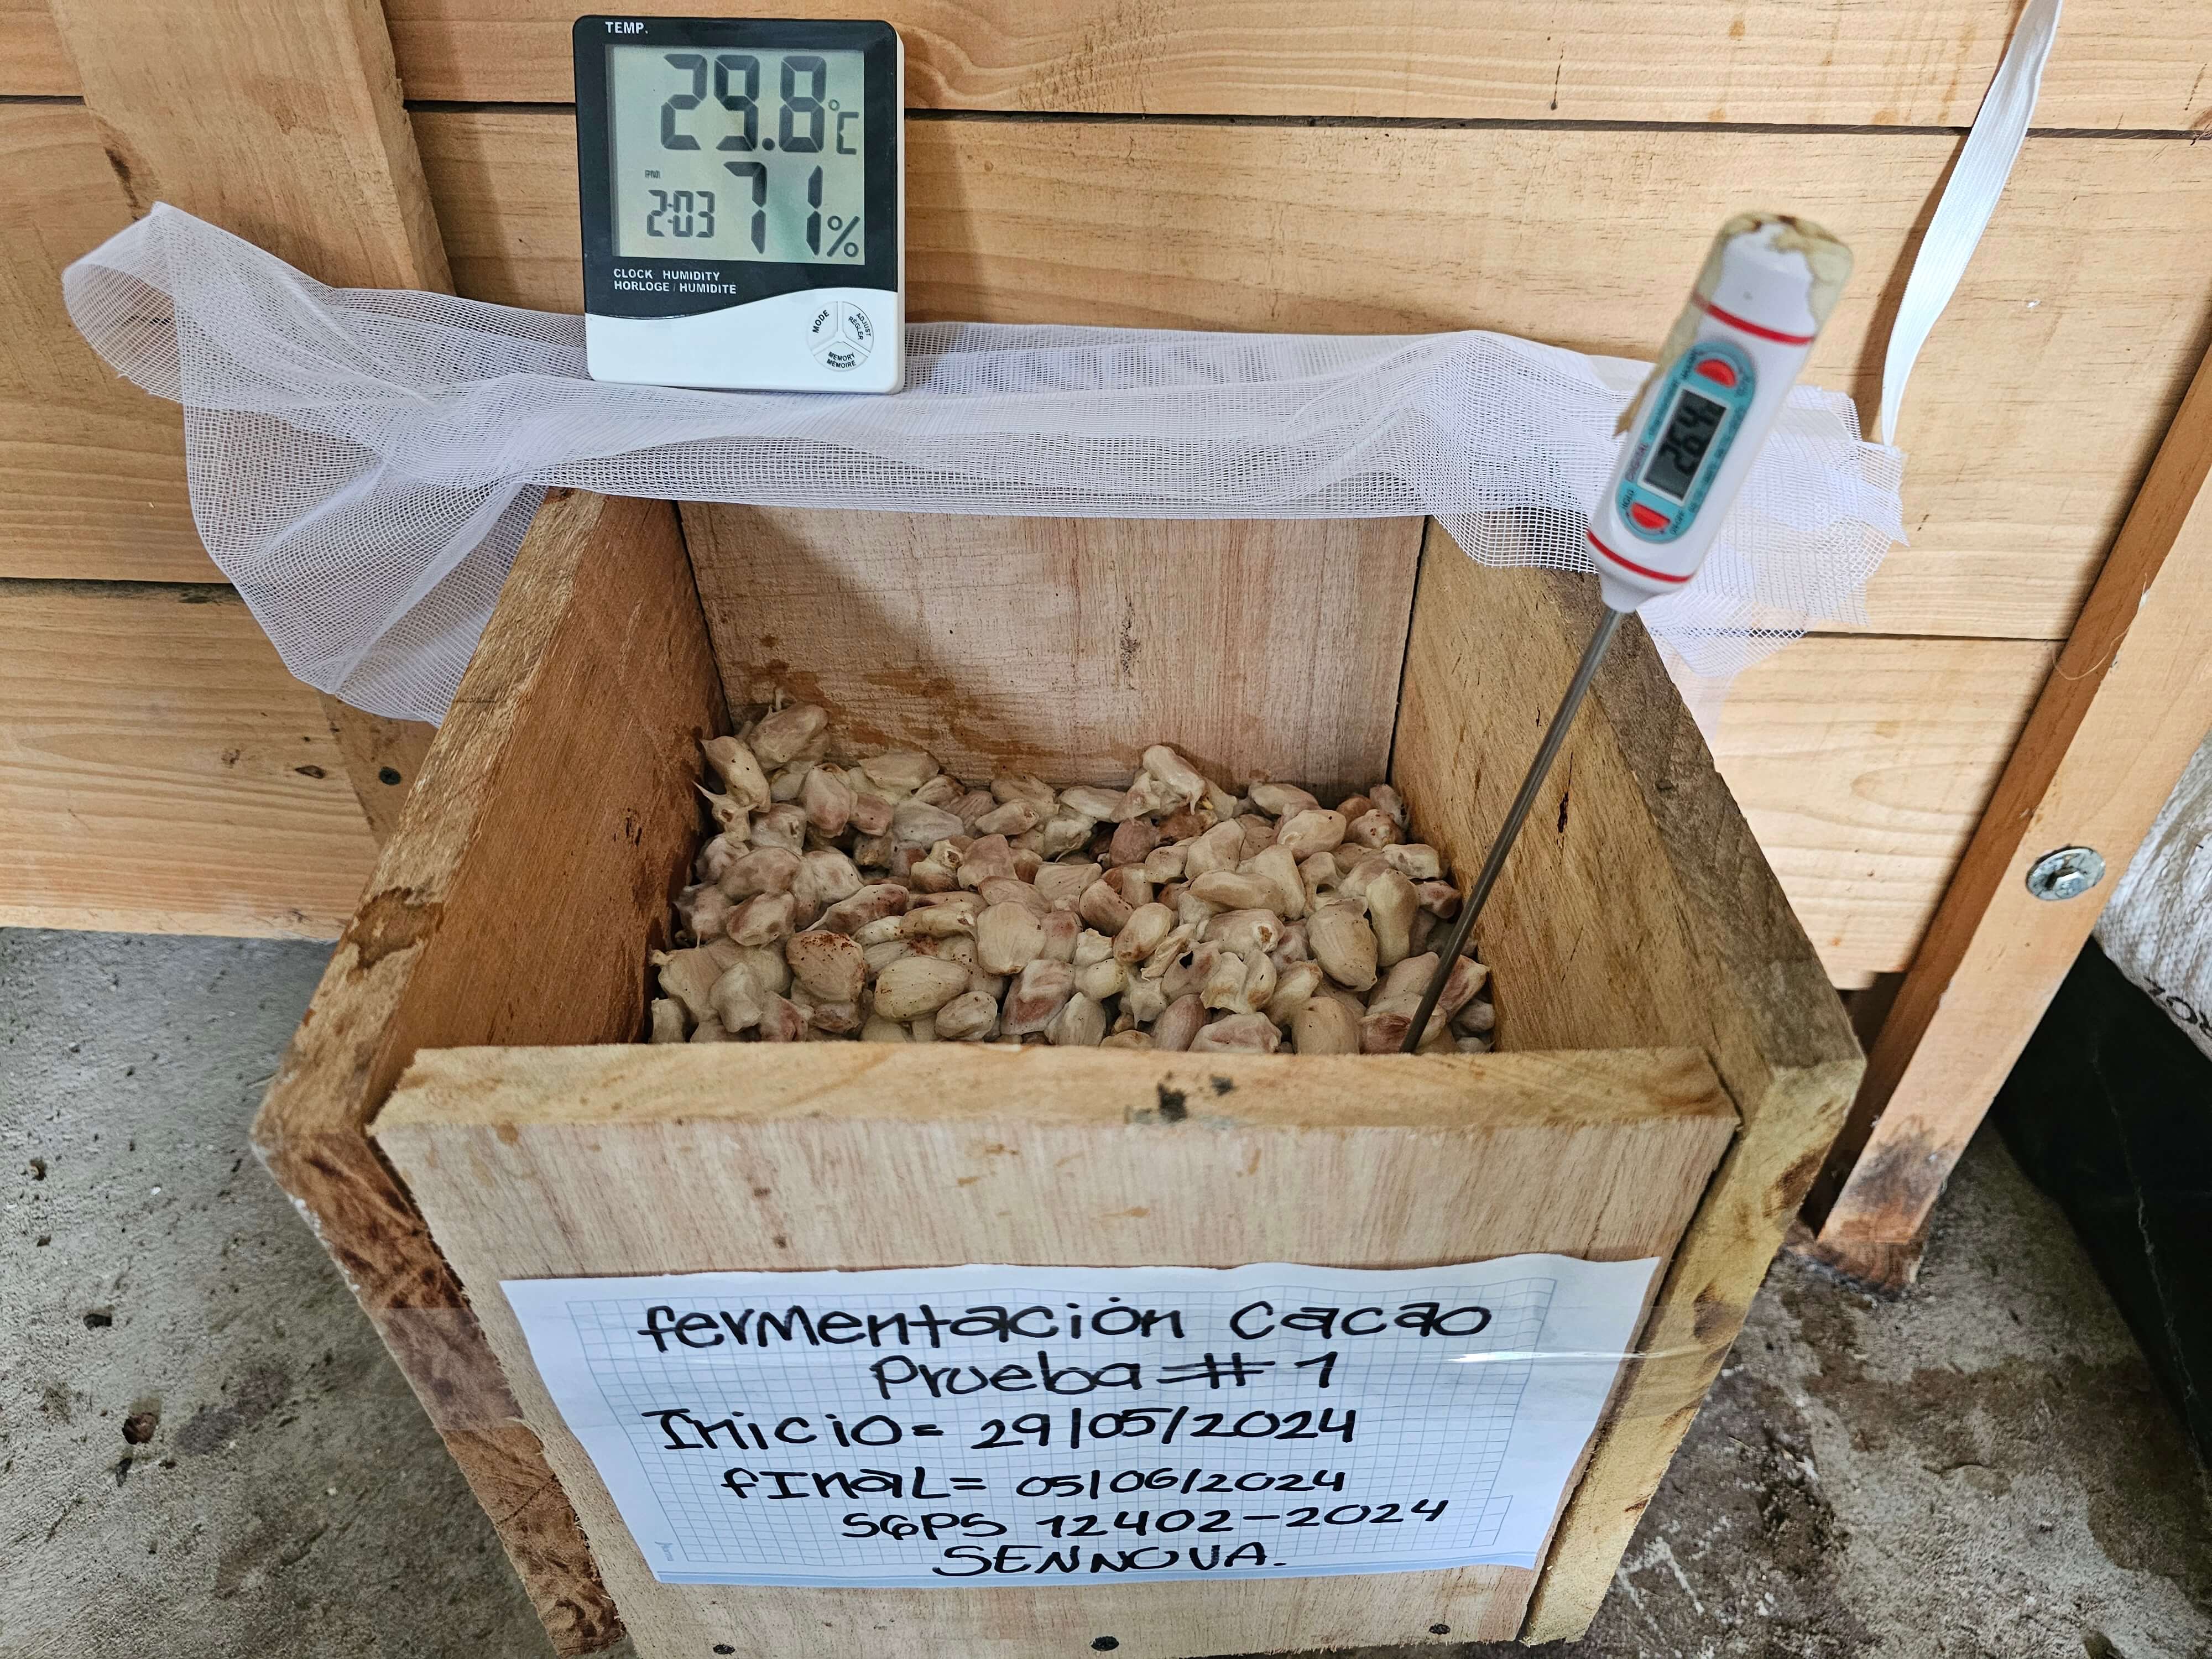 TEMP.
29.8 °C
PM
2:03 71%
CLOCK HUMIDITY
HORLOGE / HUMIDITÉ
MODE
ADJUST
RÉGLER
MEMORY
MÉMOIRE
26.4
HOLD
fermentación Cacao
Prueba # 1
Inicio= 29/05/2024
fInaL= 05/06/2024
SGPS 12402-2024
SENNOVA.